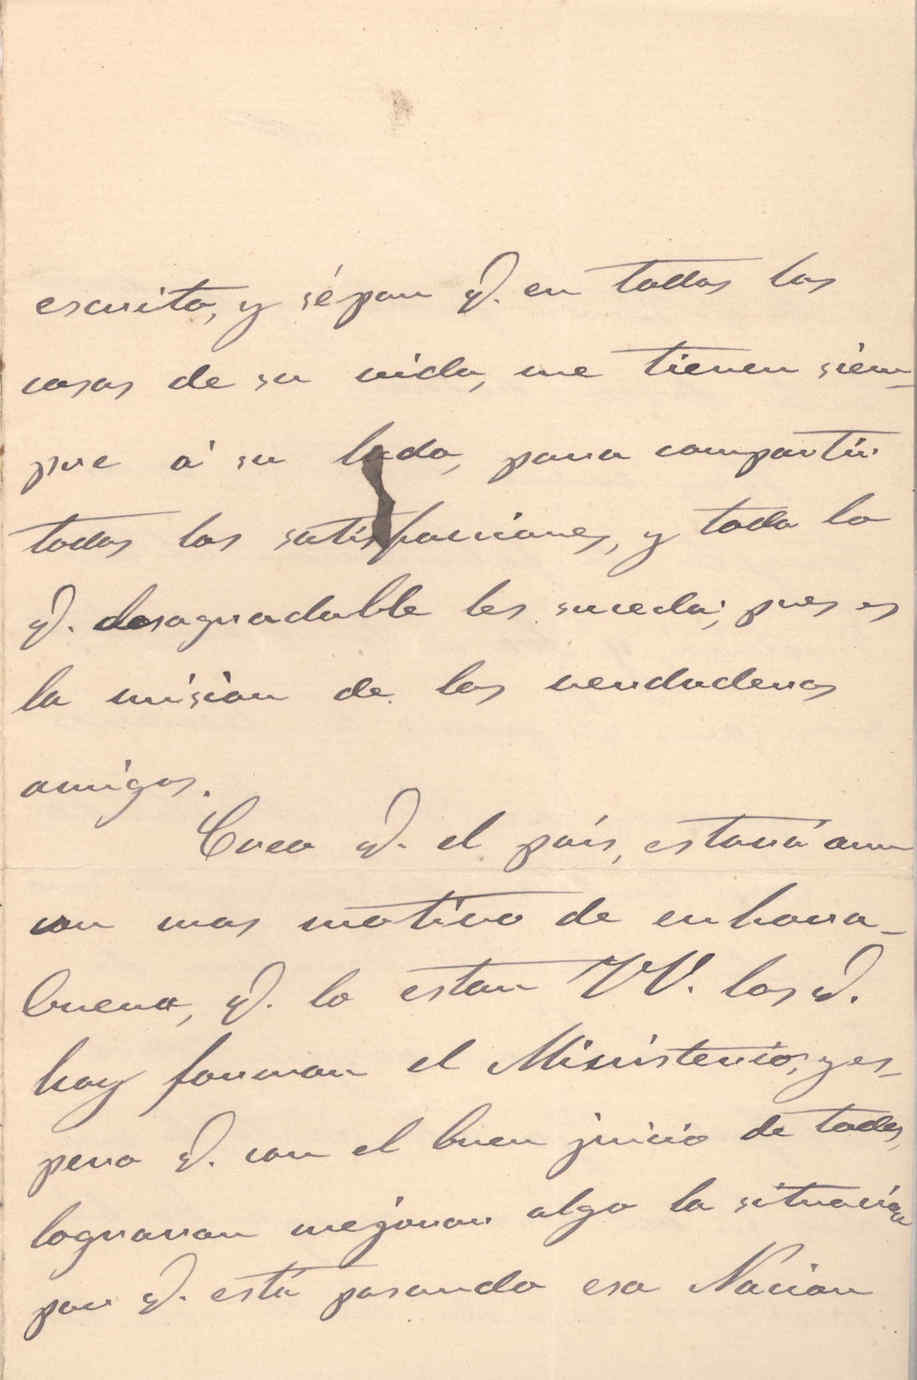 escrito, y sépan q. en todas las
cosas de su vida, me tienen siem-
pre á su lado, para compartir
todas las satisfacciones, y todo lo
q. desagradable les suceda; pues es
la mision de los verdaderos
amigos.
Creo q. el país, estará aun
con mas motivo de enhora-
buena, q. lo estan VV. los q.
hoy forman el Ministerio; y es-
pero q. con el buen juicio de todos,
lograran mejorar algo la situación
por q. está pasando esa Nacion